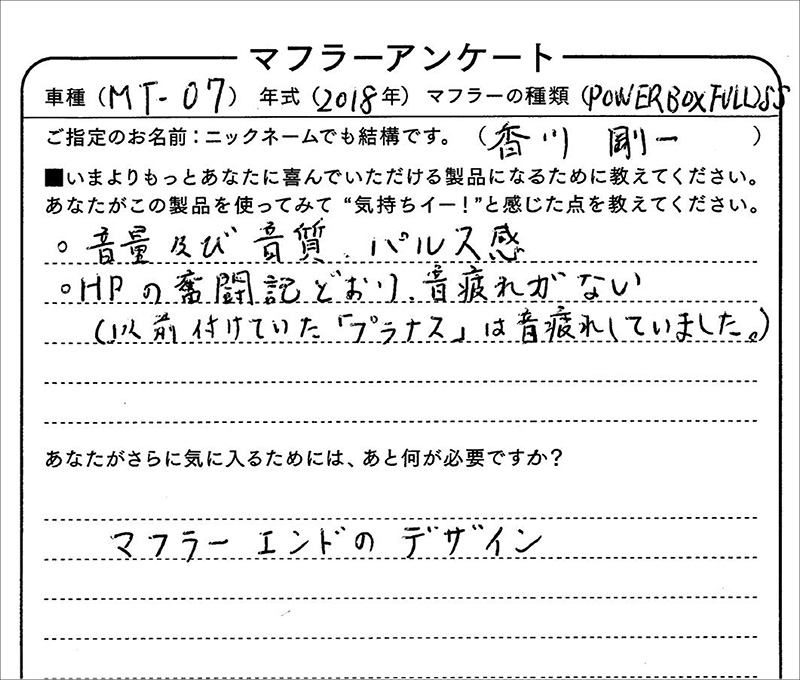 マフラーアンケート
車種（MT-07） 年式（2018年） マフラーの種類（POWERBOXFULL)SS
ご指定のお名前：ニックネームでも結構です。（香川 剛一 ）
■いまよりもっとあなたに喜んでいただける製品になるために教えてください。
あなたがこの製品を使ってみて“気持ちイー！”と感じた点を教えてください。
○ 音量及び音質、パルス感
○HPの奮闘記どおり、音疲れがない
（以前付けていた「プラナス」は音疲れしていました。）
あなたがさらに気に入るためには、あと何が必要ですか？
マフラーエンドのデザイン